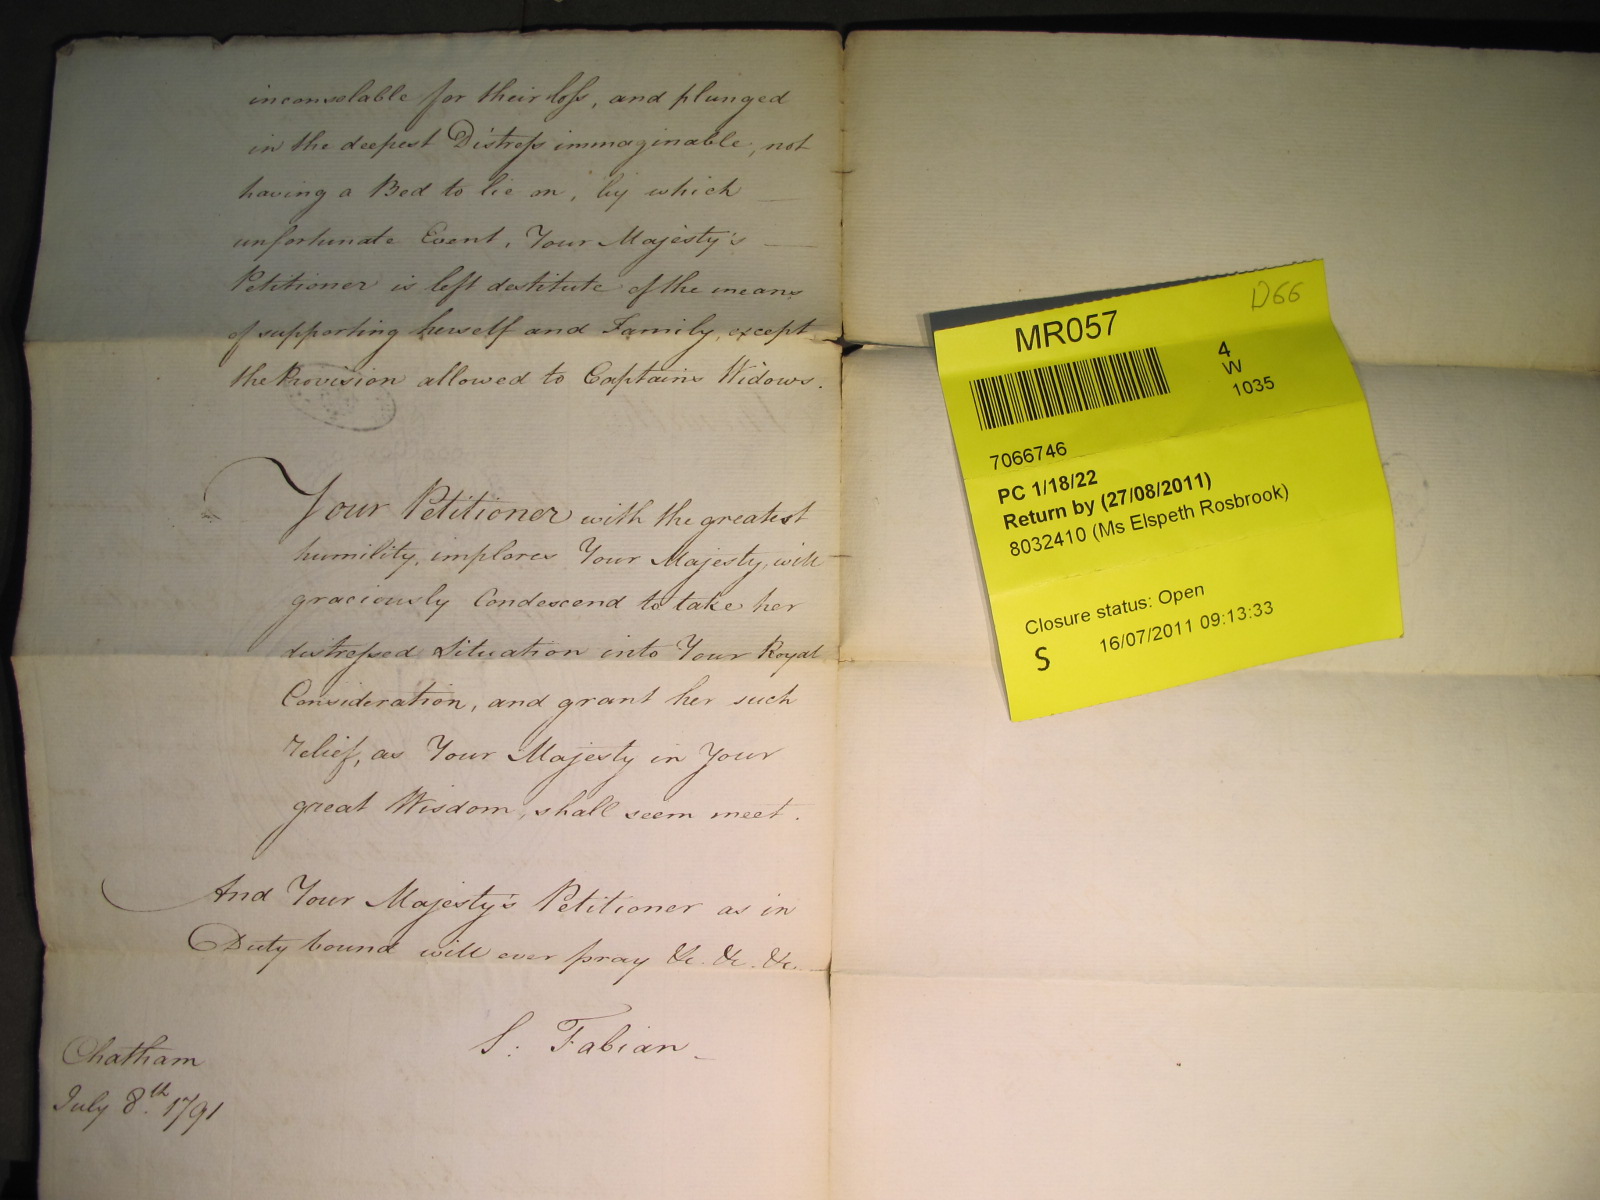 inconsolable for their loss, and plunged
in the deepest Distress immaginable, not
having a Bed to lie on, by which
unfortunate Event, Your Majesty's
Petitioner is left destitute of the means
of supporting herself and Family, except
the Provision allowed to Captains Widows.
Your Petitioner with the greatest
humility, implores Your Majesty, will
graciously Condescend to take her
distressed Situation into Your Royal
Consideration, and grant her such
relief, as Your Majesty in Your
great Wisdom, shall seem meet.
And Your Majesty's Petitioner as in
Duty bound will ever pray &c. &c. &c.
S: Fabian
Chatham
July 8th. 1791
D66
MR057
4
W
1035
7066746
PC 1/18/22
Return by (27/08/2011)
8032410 (Ms Elspeth Rosbrook)
Closure status: Open
S 16/07/2011 09:13:33